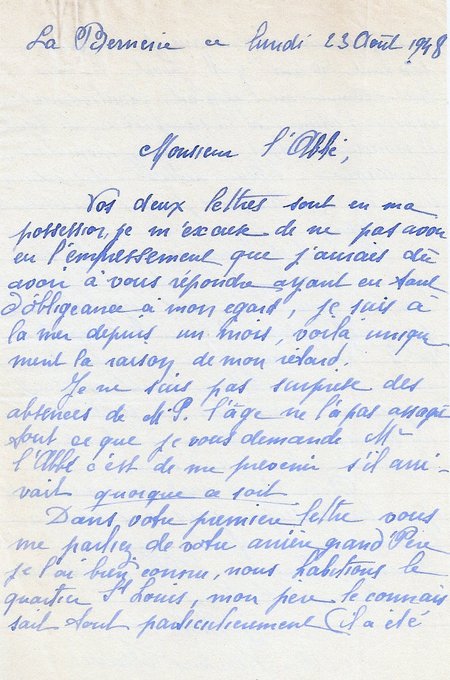 La Bernerie ce lundi 23 Août 1948
Monsieur l'Abbé,
Vos deux lettres sont en ma
possession, je m'excuse de ne pas avoir
eu l'empressement que j'aurais dû
avoir à vous répondre ayant eu tant
d'obligeance à mon egard, je suis à
la mer depuis un mois, voilà unique
ment la raison de mon retard.
Je ne suis pas surprise des
absences de Mr P. l'âge ne l'a pas assagi
tout ce que je vous demande Mr
l'Abbé c'est de me prevenir s'il arri-
vait quoique ce soit
Dans votre premiere lettre vous
me parliez de votre arrière grand Père
je l'ai bien connu, nous habitions le
quartier St Louis, mon père le connais
sait tout particulierement (il a été